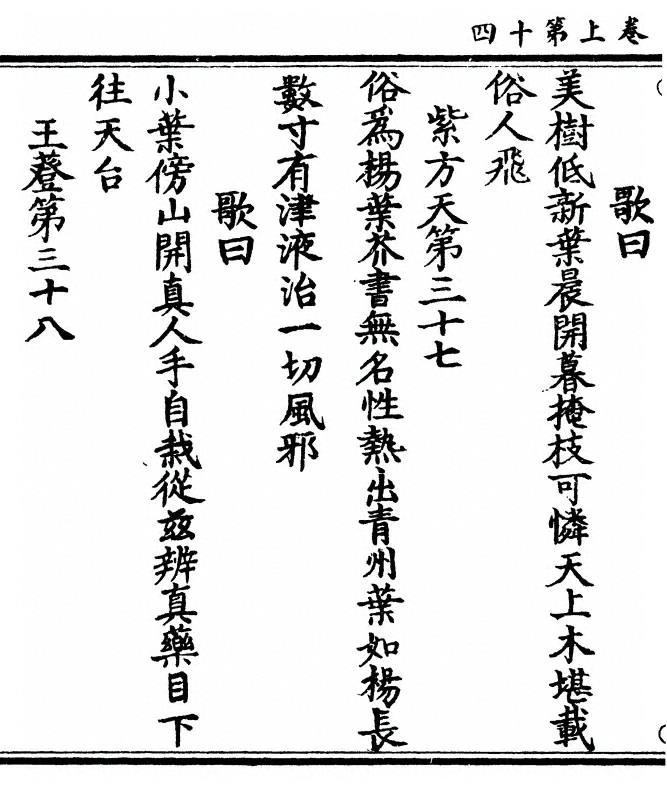 卷上第十四
歌曰
美樹低新葉晨開暮掩枝可憐天上木堪載
俗人飛
紫方天第三十七
俗為楊葉芥書無名性熱出青州葉如楊長
數寸有津液治一切風邪
歌曰
小葉傍山開真人手自栽從兹辨真藥目下
往天台
王蕟第三十八